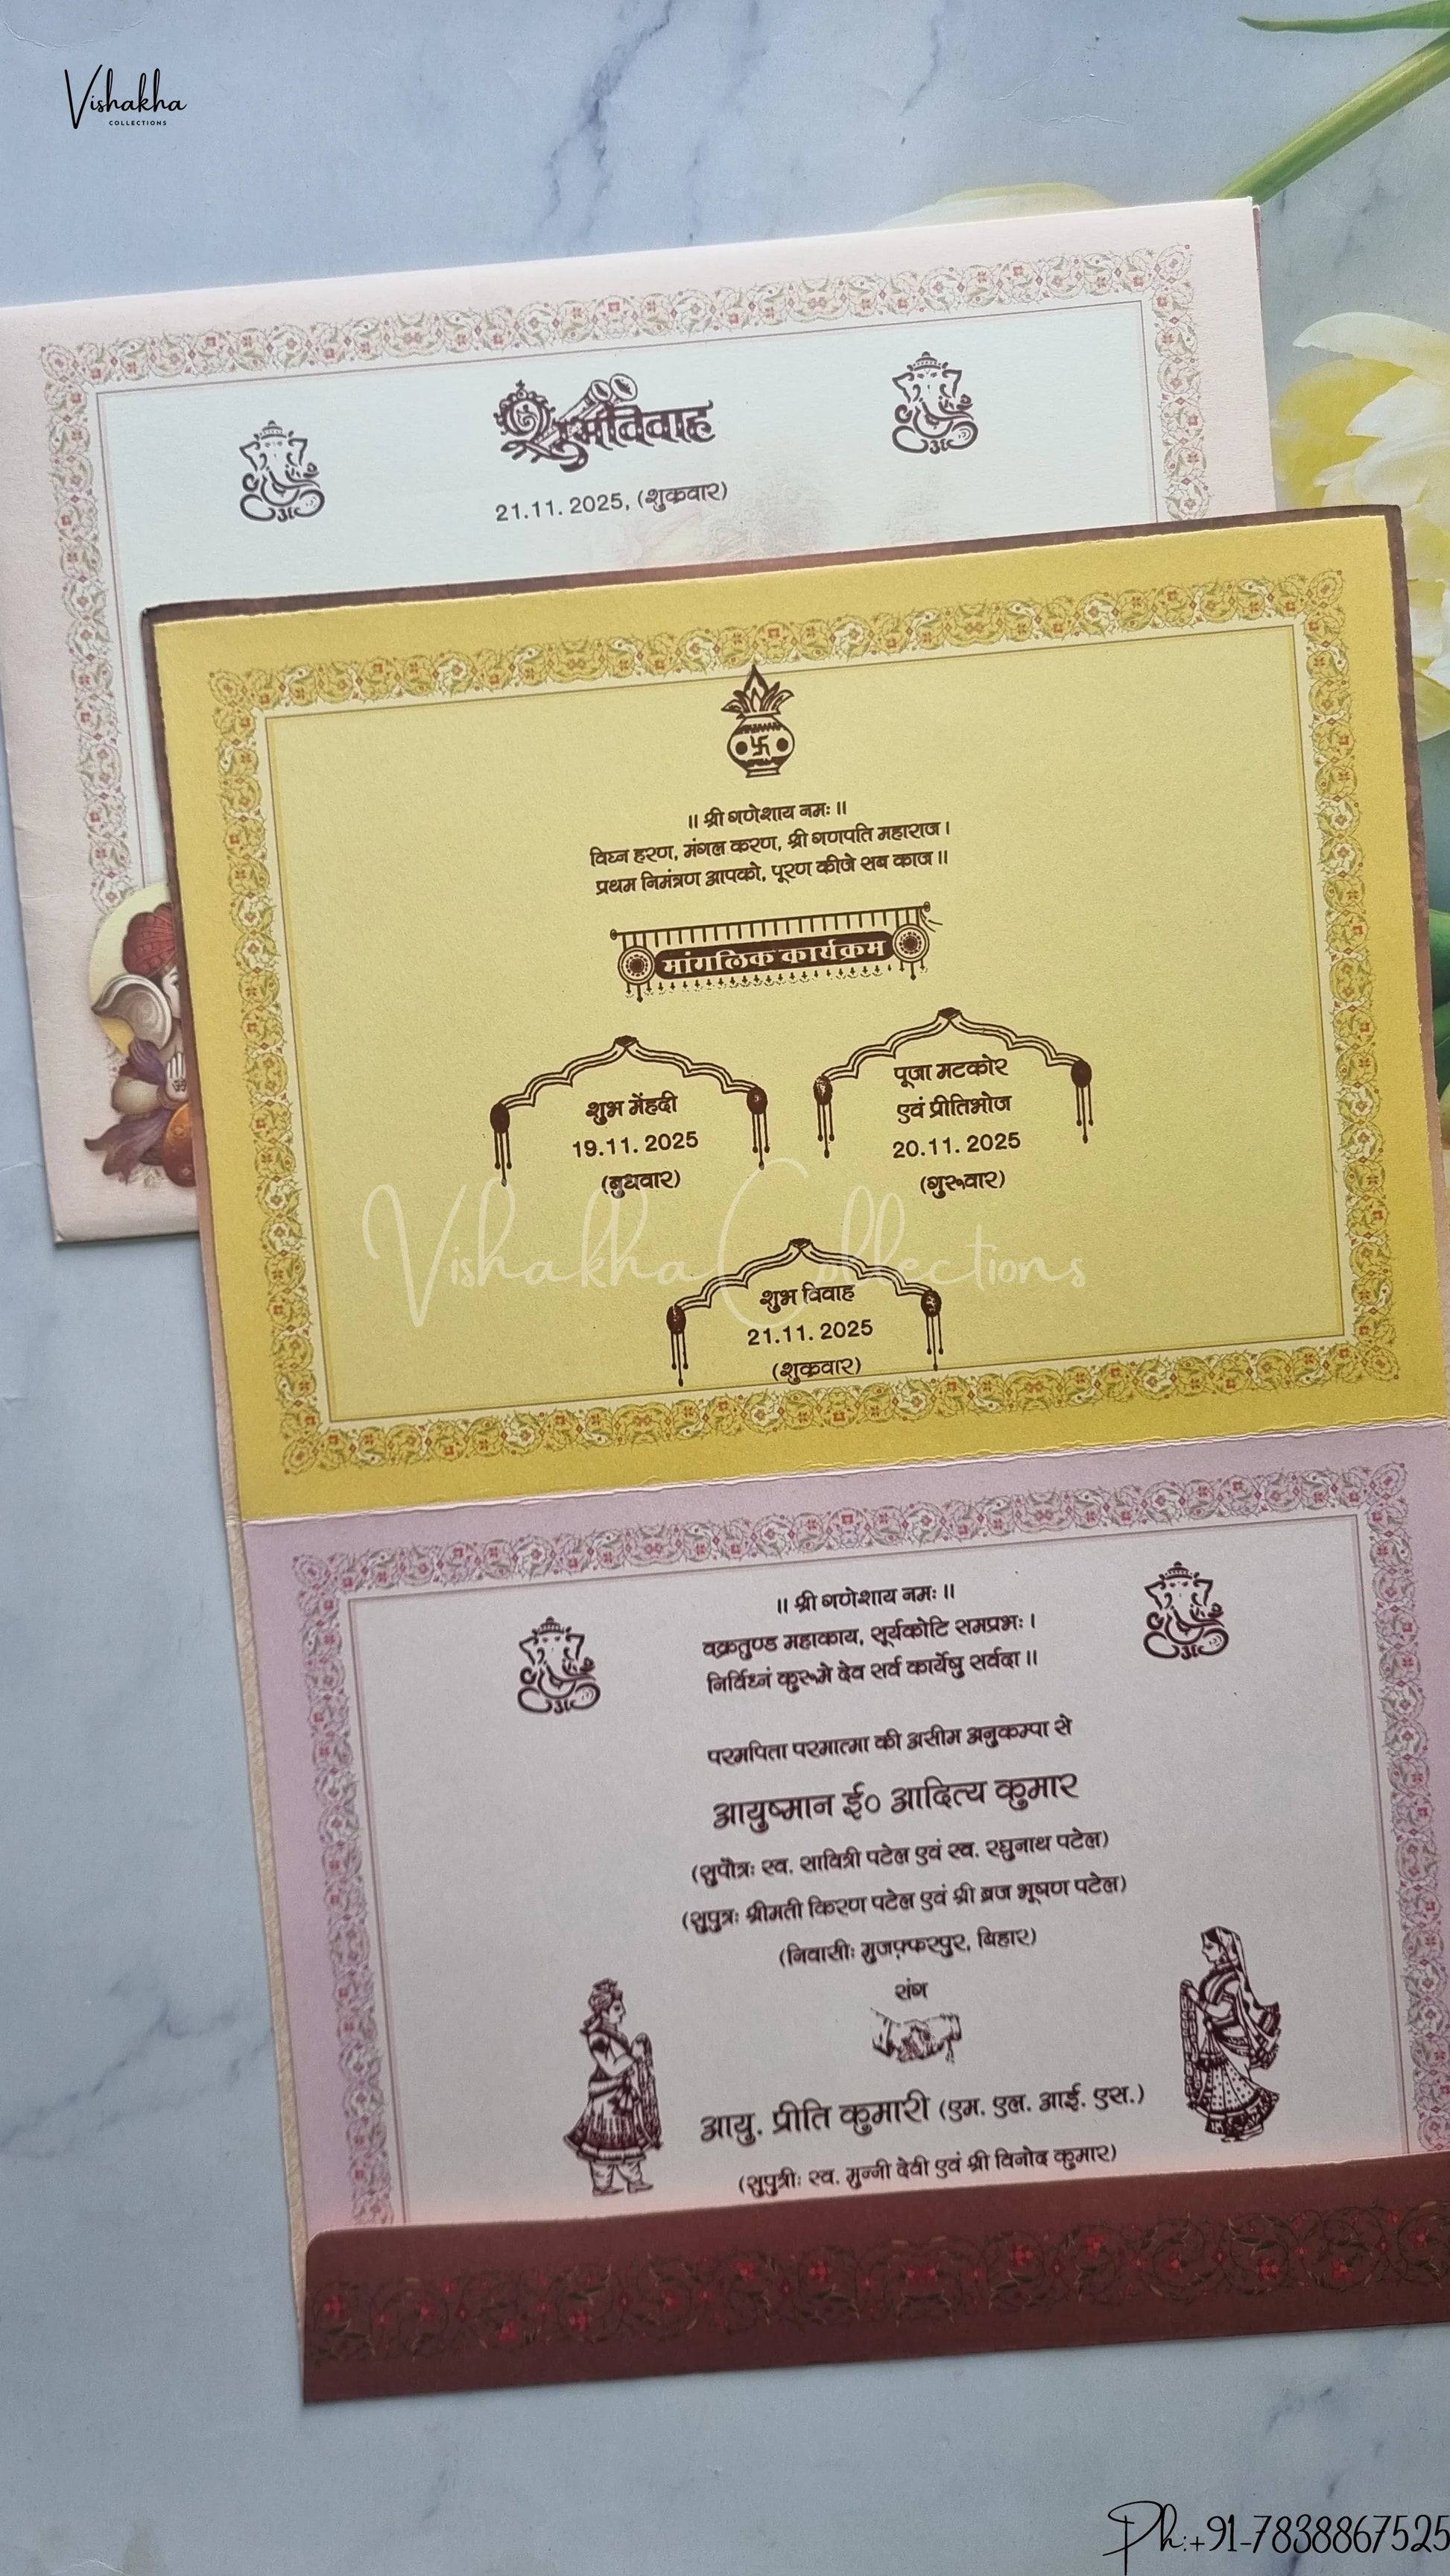 Vishakha
COLLECTIONS
शुभ विवाह
21.11.2025, (शुक्रवार)
॥ श्री गणेशाय नमः ॥
विघ्न हरण, मंगल करण, श्री गणपति महाराज।
प्रथम निमंत्रण आपको, पूरण कीजे सब काज॥
मांगलिक कार्यक्रम
शुभ मेंहदी
19.11.2025
(बुधवार)
पूजा मटकोर
एवं प्रीतिभोज
20.11.2025
(गुरूवार)
Vishakha Collections
शुभ विवाह
21.11.2025
(शुक्रवार)
॥ श्री गणेशाय नमः ॥
वक्रतुण्ड महाकाय, सूर्यकोटि समप्रभः।
निर्विध्नं कुरूमे देव सर्व कार्येषु सर्वदा॥
परमपिता परमात्मा की असीम अनुकम्पा से
आयुष्मान ई० आदित्य कुमार
(सुपौत्रः स्व. सावित्री पटेल एवं स्व. रघुनाथ पटेल)
(सुपुत्रः श्रीमती किरण पटेल एवं श्री ब्रज भूषण पटेल)
(निवासीः मुजफ़्फरपुर, बिहार)
संग
आयु. प्रीति कुमारी (एम. एल. आई. एस.)
(सुपुत्रीः स्व. मुन्नी देवी एवं श्री विनोद कुमार)
Ph:+91-7838867525